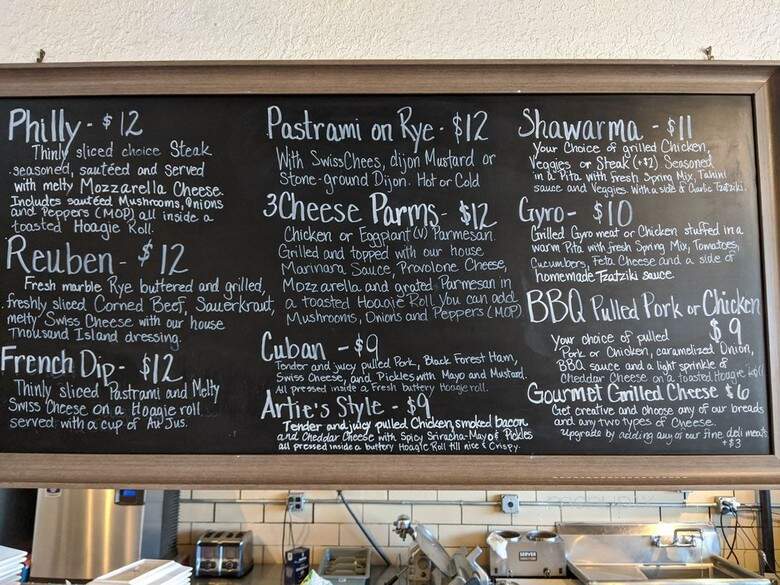 Philly - $12
Thinly sliced choice Steak
seasoned, sautéed and served
with melty Mozzarella Cheese.
Includes sautéed Mushrooms, Onions
and Peppers (MOP) all inside a
toasted Hoagie Roll.
Reuben - $12
Fresh marble Rye buttered and grilled,
freshly sliced Corned Beef, Sauerkraut,
melty Swiss Cheese with our house
Thousand Island dressing.
French Dip - $12
Thinly sliced Pastrami and Melty
Swiss Cheese on a Hoagie roll
served with a cup of Au Jus.
Pastrami on Rye - $12
With Swiss Chees, dijon Mustard or
Stone-ground Dijon. Hot or Cold
3 Cheese Parms - $12
Chicken or Eggplant (V) Parmesan.
Grilled and topped with our house
Marinara Sauce, Provolone Cheese,
Mozzarella and grated Parmesan in
a toasted Hoagie Roll You can add
Mushrooms, Onions and Peppers (MOP)
Cuban - $9
Tender and juicy pulled Pork, Black Forest Ham,
Swiss Cheese, and Pickles with Mayo and Mustard.
All pressed inside a fresh buttery Hoagie roll.
Artie's Style - $9
Tender and juicy pulled Chicken, smoked bacon
and Cheddar Cheese with Spicy Sriracha-Mayo & Pickles
all pressed inside a buttery Hoagie Roll till nice & Crispy.
Shawarma - $11
Your Choice of grilled Chicken,
Veggies or Steak (+$2). Seasoned
in a Pita with fresh Spring Mix, Tahini
sauce and Veggies. With a side of Garlic Tzatziki.
Gyro - $10
Grilled Gyro meat or Chicken stuffed in a
warm Pita with fresh Spring Mix, Tomatoes,
Cucumbers, Feta Cheese and a side of
homemade Tzatziki sauce.
BBQ Pulled Pork or Chicken
$9
Your choice of pulled
Pork or Chicken, caramelized Onion,
BBQ sauce and a light sprinkle of
Cheddar Cheese on a toasted Hoagie roll
Gourmet Grilled Cheese $6
Get creative and choose any of our breads
and any two types of Cheese.
Upgrade by adding any of our fine deli meats
+$3
SERVER